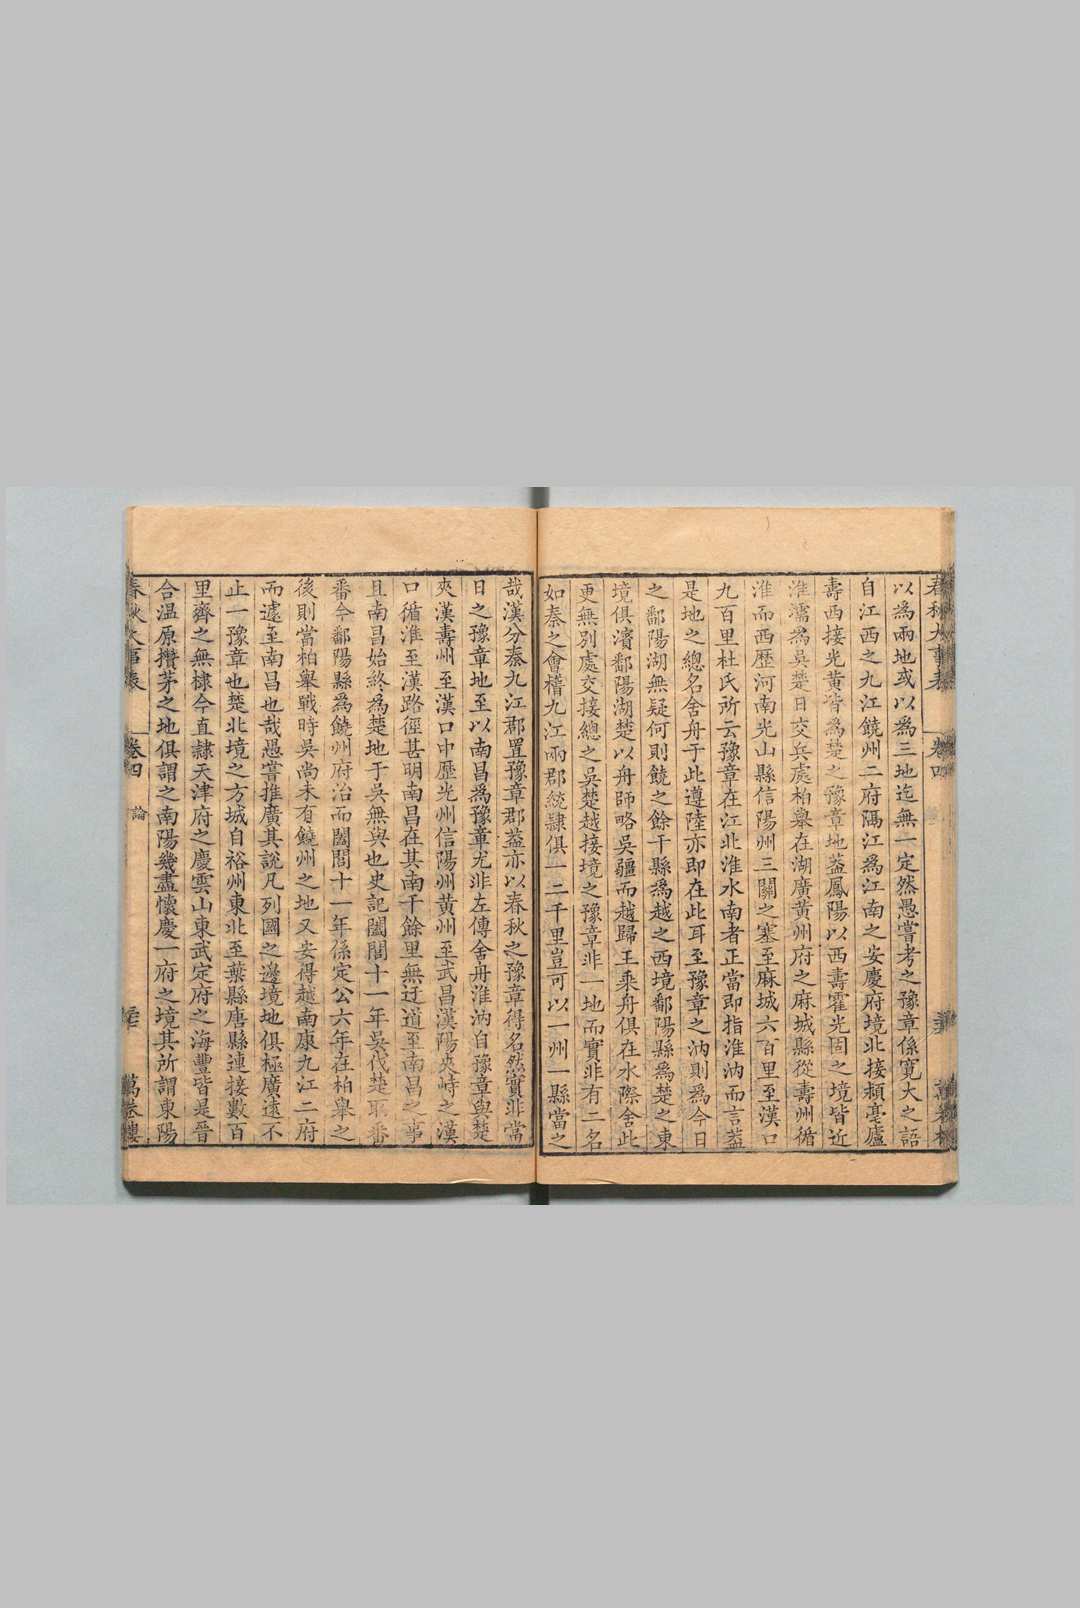 春秋大事表 卷四
以為兩地或以為三地迄無一定然愚嘗考之豫章係寬大之語
自江西之九江饒州二府隔江為江南之安慶府境北接潁亳廬
壽西接光黃皆為楚之豫章地葢鳳陽以西壽霍光固之境皆近
淮濡為吳楚日交兵處柏舉在湖廣黃州府之麻城縣從壽州循
淮而西歷河南光山縣信陽州三關之塞至麻城六百里至漢口
九百里杜氏所云豫章在江北淮水南者正當即指淮汭而言葢
是地之總名舍舟于此遵陸亦即在此耳至豫章之汭則為今日
之鄱陽湖無疑何則饒之餘干縣為越之西境鄱陽縣為楚之東
境俱濱鄱陽湖楚以舟師略吳疆而越歸王乘舟俱在水際舍此
更無別處交接總之吳楚越接境之豫章非一地而實非有二名
如秦之會稽九江兩郡統隸俱一二千里豈可以一州一縣當之
哉漢分秦九江郡置豫章郡葢亦以春秋之豫章得名然實非當
日之豫章地至以南昌為豫章尤非左傳舍舟淮汭自豫章與楚
夾漢壽州至漢口中歷光州信陽州黃州至武昌漢陽夾峙之漢
口循淮至漢路徑甚明南昌在其南千餘里無迂道至南昌之事
且南昌始終為楚地于吳無與也史記闔閭十一年吳伐楚取番
番今鄱陽縣為饒州府治而闔閭十一年係定公六年在柏舉之
後則當柏舉戰時吳尚未有饒州之地又安得越南康九江二府
而遽至南昌也哉愚嘗推廣其說凡列國之邊境地俱極廣遠不
止一豫章也楚北境之方城自裕州東北至葉縣唐縣連接數百
里齊之無棣今直隸天津府之慶雲山東武定府之海豐皆是晉
合溫原攢茅之地俱謂之南陽幾盡懷慶一府之境其所謂東陽
春秋大事表 卷四 論 萬卷樓